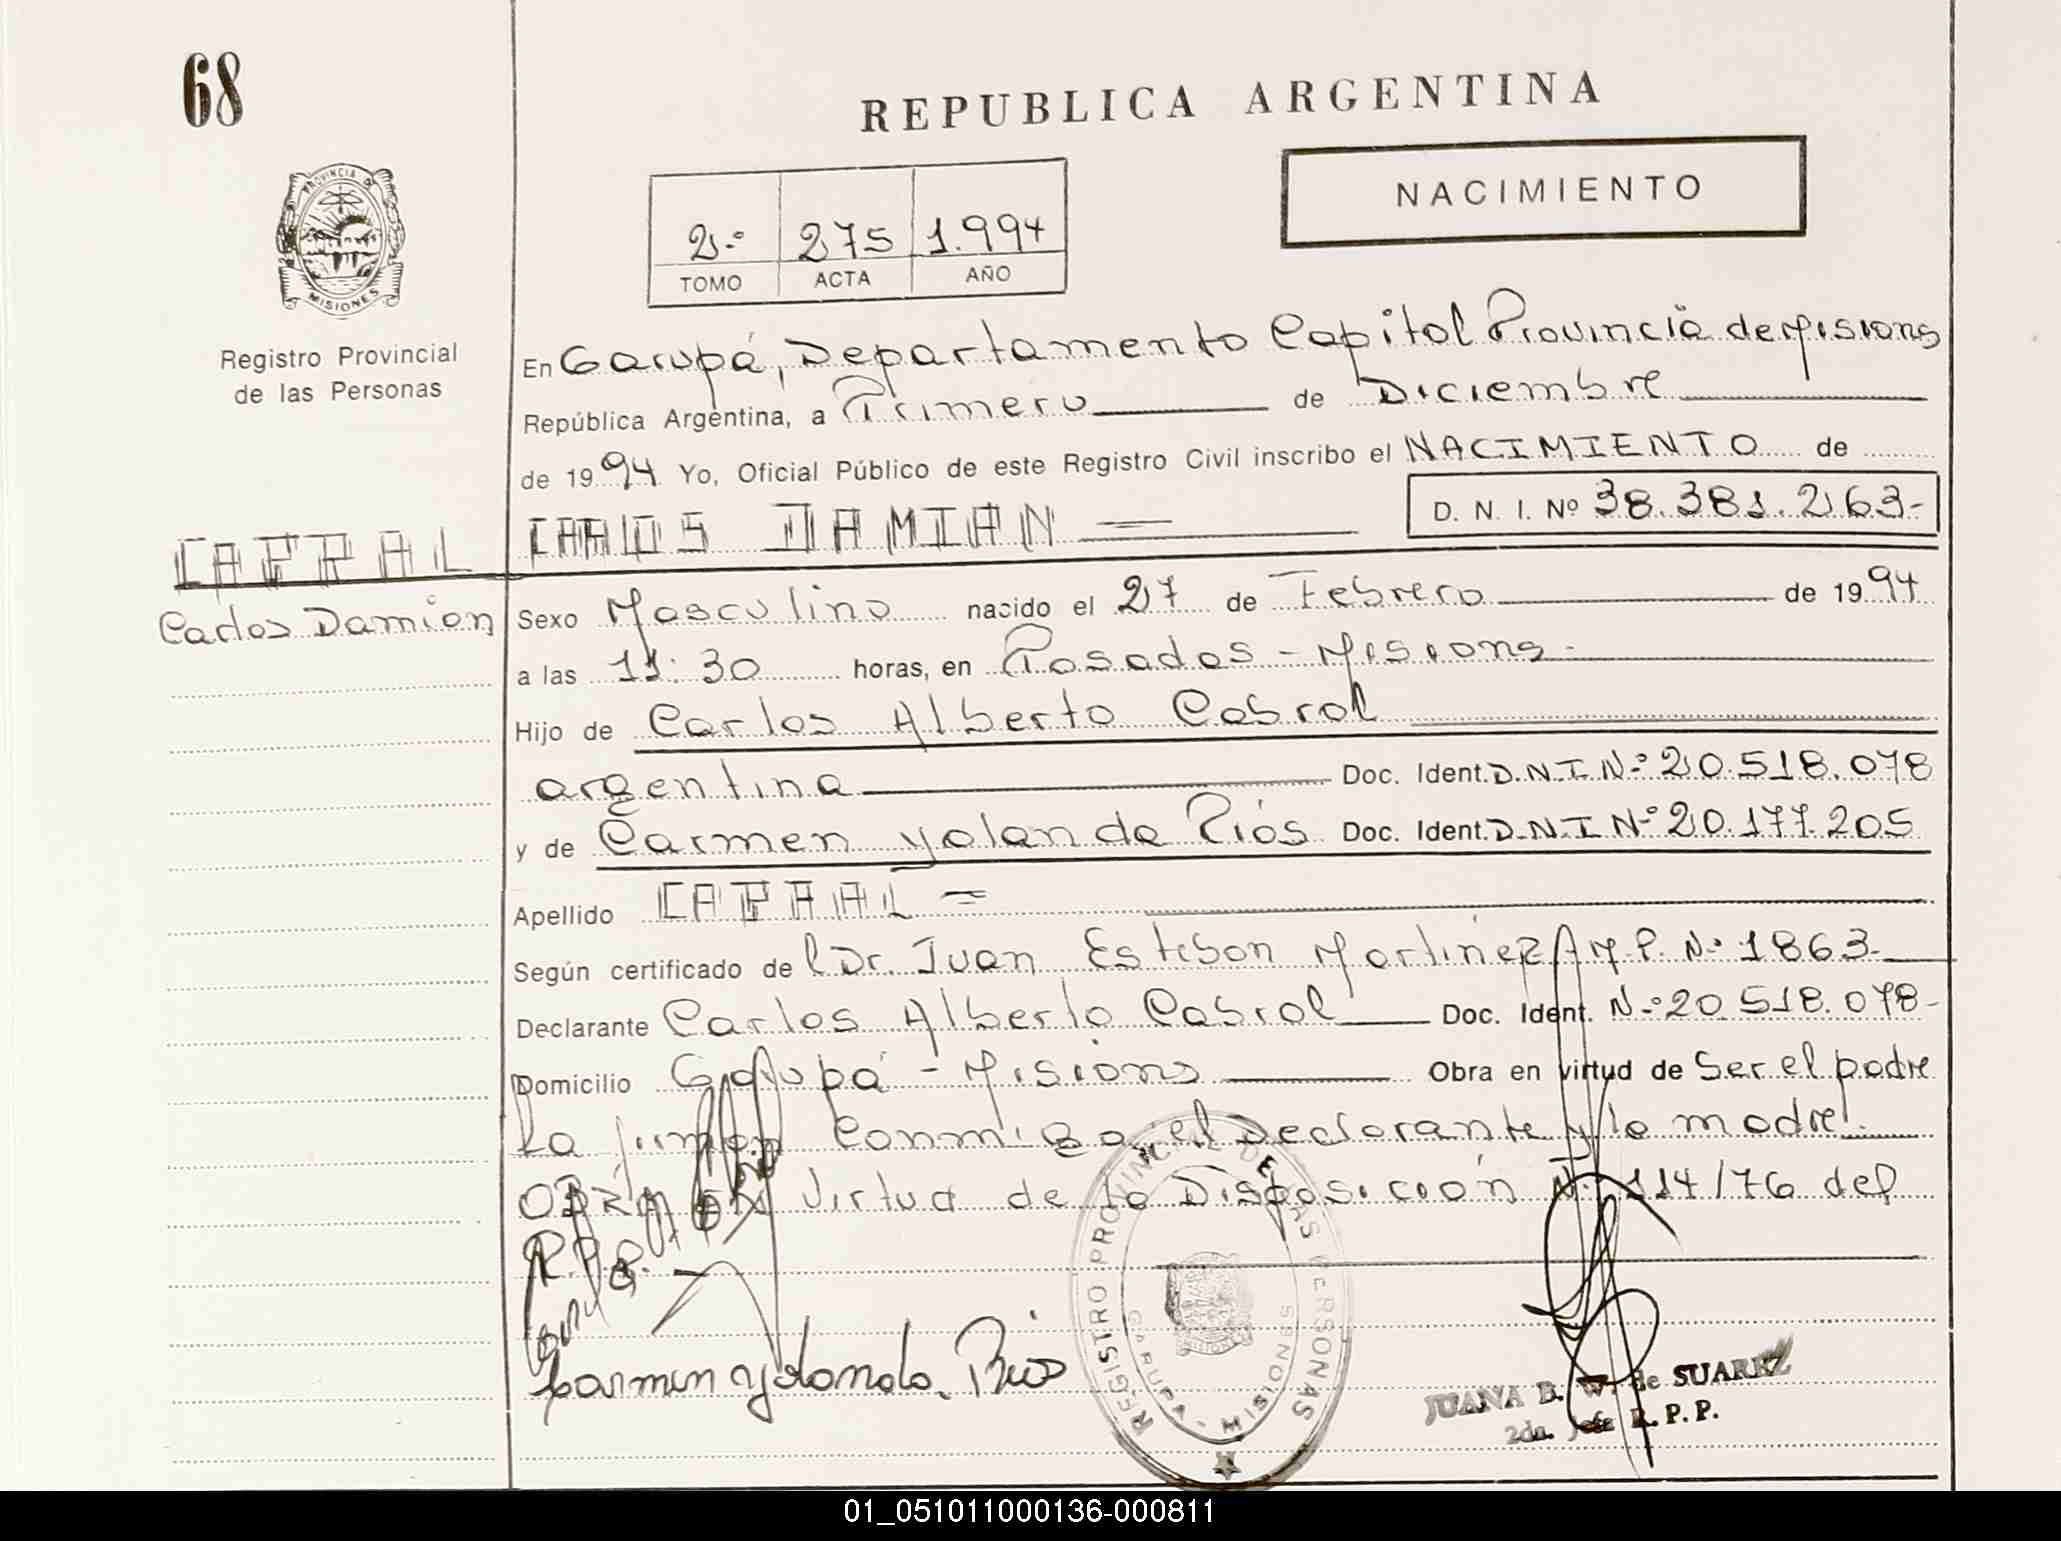 68
REPUBLICA ARGENTINA
NACIMIENTO
2º 275 1.994
TOMO ACTA AÑO
PROVINCIA DE
MISIONES
Registro Provincial
de las Personas
En Garupá, Departamento Capital Provincia de Misiones
República Argentina, a Primero de Diciembre
de 1994 Yo, Oficial Público de este Registro Civil inscribo el NACIMIENTO de
D. N. I. Nº 38.381.263-
CABRAL
CARLOS DAMIAN
Carlos Damian
Sexo Masculino nacido el 27 de Febrero de 1994
a las 11:30 horas, en Posadas - Misiones -
Hijo de Carlos Alberto Cabral
argentina Doc. Ident. D.N.I.Nº 20.518.078
y de Carmen Yolanda Ríos Doc. Ident. D.N.I Nº 20.177.205
Apellido CABRAL =
Según certificado de l Dr. Juan Esteban Martínez M.P. Nº 1863-
Declarante Carlos Alberto Cabral Doc. Ident. Nº 20.518.078-
Domicilio Garupá - Misiones Obra en virtud de Ser el padre
La firman conmigo el Declarante y la madre.
OBRA EN Virtud de la Disposición Nº 114/76 del
R.P.P.
Carmen Yolanda Rios
REGISTRO PROVINCIAL DE LAS PERSONAS
GARUPA - MISIONES
JUANA B. W. de SUAREZ
2da. Jefe R.P.P.
01_051011000136-000811